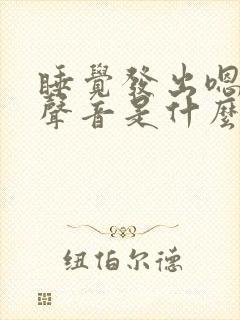 睡覺發出嗯
聲音是什麼
纽伯尔德